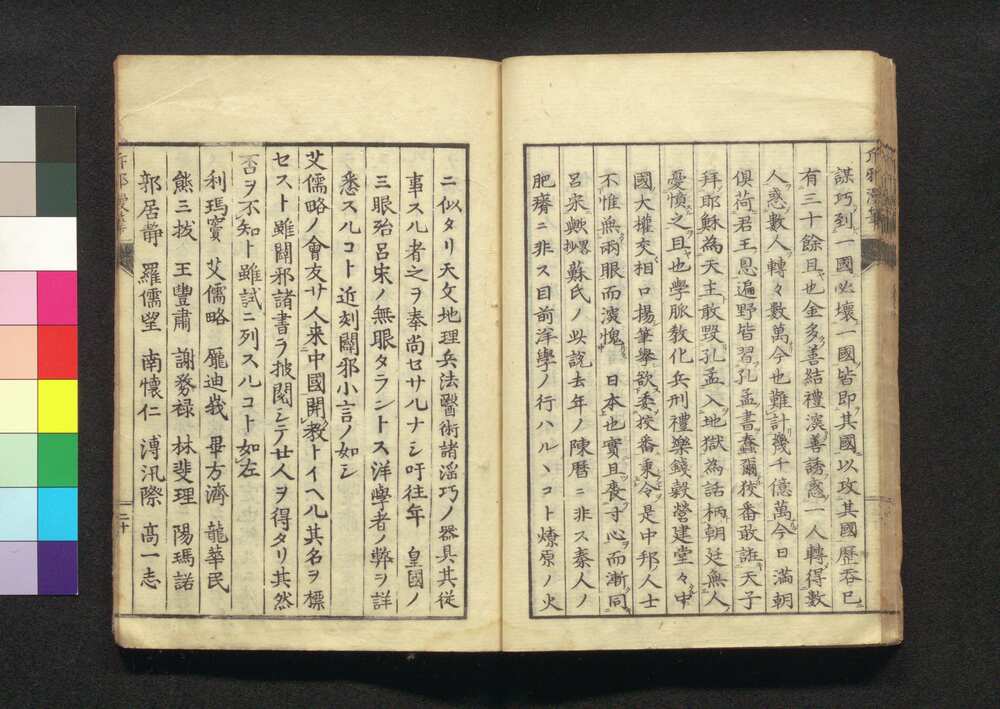 謀巧到一國必壞一國皆即其國以攻其國歷吞已
有三十餘且也金多善結禮深善誘惑一人轉得數
人惑數人轉々數萬今也難計幾千億萬今日滿朝
俱荷君王恩遍野皆習孔孟書蠢爾狡番敢誑天子
拜耶穌為天主敢毀孔孟入地獄為話柄朝廷無人
憂憤之且也學脈教化兵刑禮樂錢穀營建堂々中
國大權交相口揚筆舉欲委狡番秉令是中邦人士
不惟無兩眼而演愧日本也實且喪寸心而漸同
呂宋歟畧抄蘇氏ノ此說去年ノ陳曆ニ非ス秦人ノ
肥瘠ニ非ス目前洋學ノ行ハルヽコト燎原ノ火
ニ似タリ天文地理兵法醫術諸滛巧ノ器具其從
事スル者之ヲ奉尚セサルナシ吁往年 皇國ノ
三眼殆呂宋ノ無眼タラントス洋學者ノ弊ヲ詳
悉スルコト近刻闢邪小言ノ如シ
艾儒略ノ會友廿人来中國開教トイヘ凡其名ヲ標
セスト雖闢邪諸書ラ披閱シテ廿人ヲ得タリ其然
否ヲ不知ト雖試ニ列スルコト如左
利瑪竇 艾儒略 龐迪峩 畢方濟 龍華民
熊三拔 王豐肅 謝務祿 林斐理 陽瑪諾
郭居靜 羅儒望 南懷仁 溥汎際 高一志
二十